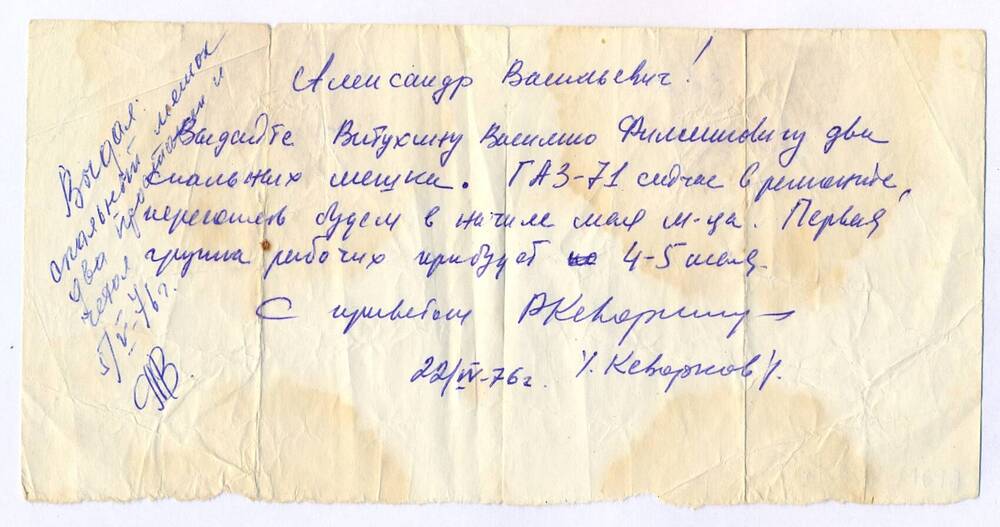 Александр Васильевич!
Выдайте Витухину Василию Филипповичу два
спальных мешка. ГАЗ-71 сейчас в ремонте,
перегонять будем в начале мая м-ца. Первая
группа рабочих прибудет 4-5 мая.
С приветом
22/IV-76г. /. Кеворков /.
Выдал:
спальный мешок
два и
чехол
5/V-76г.